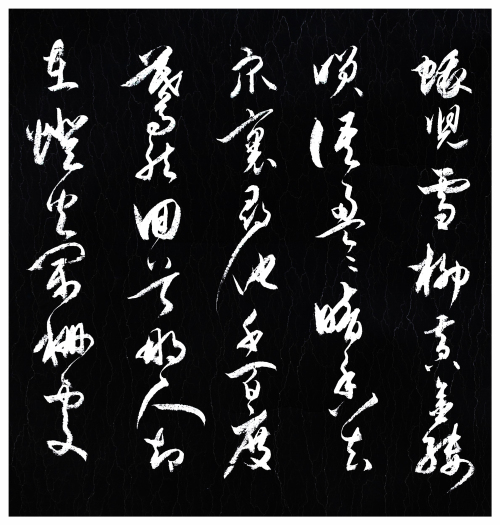 蛾兒雪柳黃金縷
咲語盈〻暗香去
衆裏尋他千百度
驀然回首那人却
在燈火闌珊處